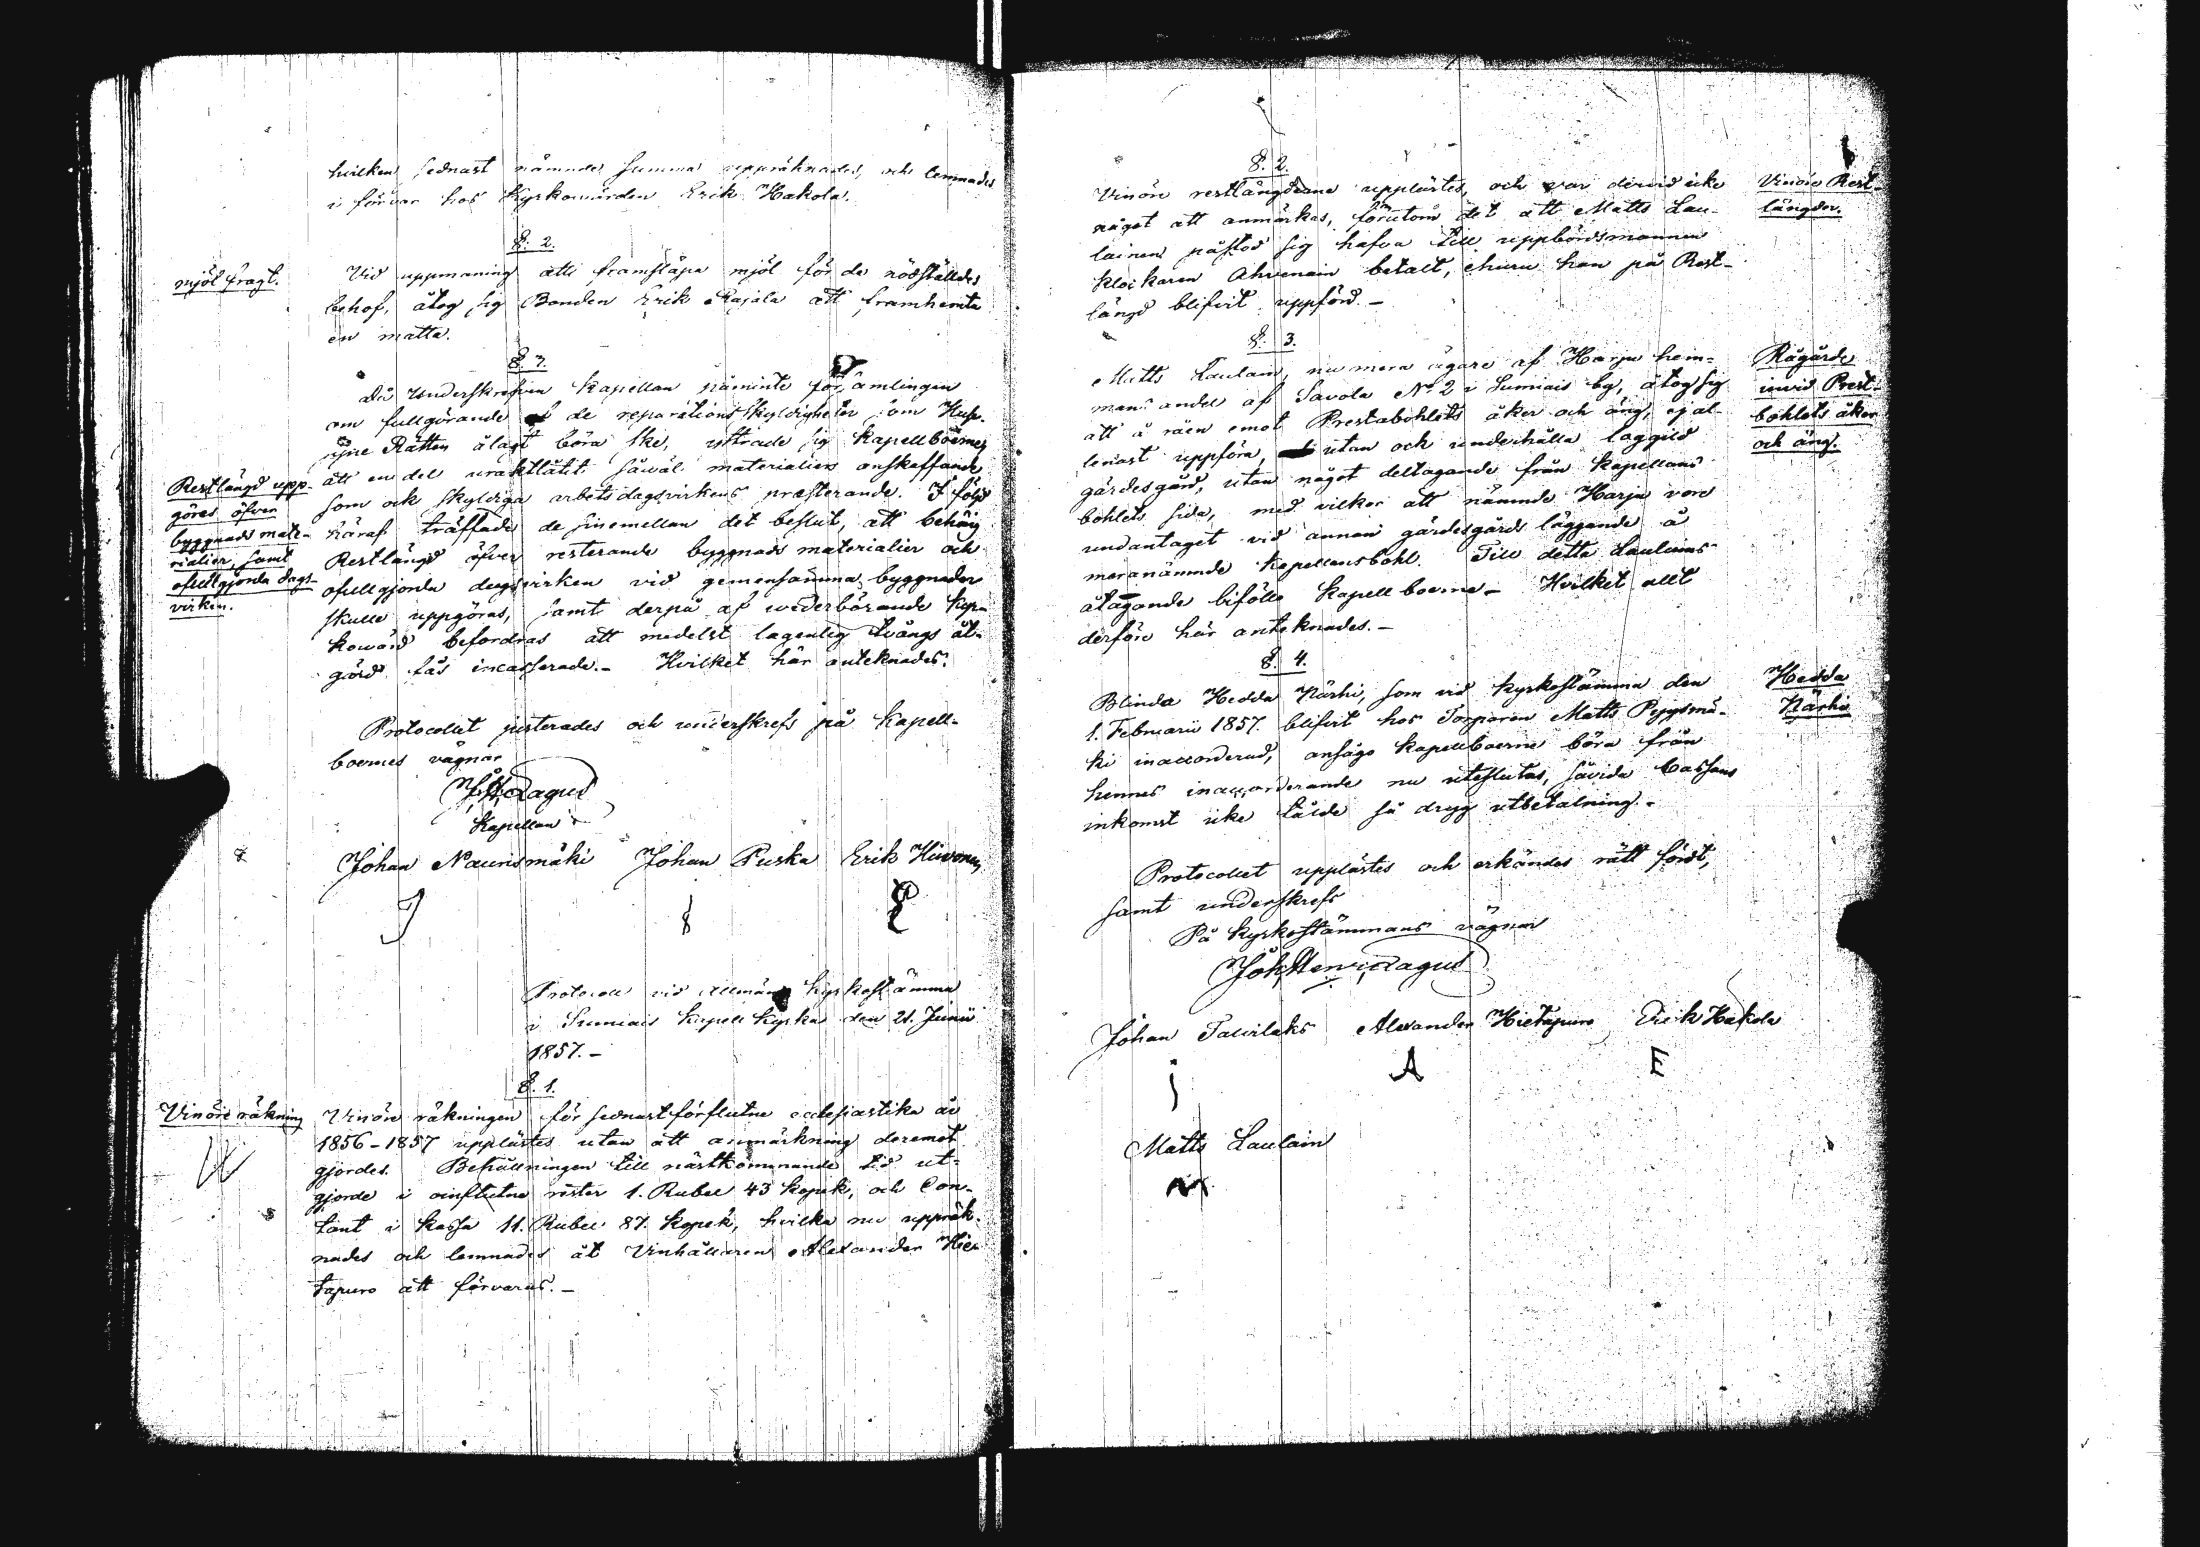 hvilken sednast nämnde summa uppräknades, och lemnades
i förvar hos Kyrkowärden Erik Hakola.
§. 2.
mjöl fragt.
Vid uppmaning att framsläpa mjöl för de nödställdes
behof, åtog sig Bonden Erik Rajala att framhemta
en matta.
§. 3.
Då Underskrefven Kapellan påminte församlingen
om fullgörande af de reparations skyldigheter som Husesyne
Rätten ålagt böra ske, yttrade sig Kapellboerne,
att en del uraktlåtit såwäl materialiers anskaffande
som ock skyldiga arbets dagsvirkens præsterande. I följd
häraf träffade de sinsemellan det beslut, att behörig
Restlängd öfver resterande byggnads materialier och
ofullgjorda dagsvirken vid gemensamma byggnader
skulle uppgöras, samt derpå af wederbörande
befordras att medelst lagenlig tvångs åt-
gärd fås incasserade. - Hvilket här anteknades.
Restlängd upp-
göres öfver
byggnads mate-
rialier, samt
ofullgjorda dags-
virken.
Protocollet justerades och underskrefs på Kapell-
boernes vägnar
Kapellan
Johan Naurismäki Johan Puska Erik Hiivonen
J
E
Protocoll vid Allmän Kyrkostämma
i Sumiais Kapell Kyrka den 21. Junii
1857. -
§. 1.
Vinöre räkning
Vinöre räkningen för sednast förflutne ecclesiastika år
1856-1857 upplästes utan att anmärkning deremot
gjordes. Behållningen till nästkommande tid ut-
gjorde i oinflutne rester 1. Rubel 43 kopek, och Con-
tant i kassa 11. Rubel 87. kopek, hvilka nu uppräk-
nades och lemnades åt Vinhållaren Alexander Hie-
tapuro att förvaras. -
§. 2.
Vinöre restlängderne upplästes, och var dervid icke
något att anmärkas, förutom det att Matts Lau-
lainen påstod sig hafva till uppbördsmannen
klockaren Ahvenain betalt, ehuru han på Rest-
längd blifvit uppförd. -
Vinöre Rest-
längder.
§. 3.
Matts Laulain, nu mera ägare af Harju hem-
mans andel af Savola No 2 i Sumiais by, åtog sig
att å råen emot Prestabohlets åker och äng, ej al-
lenast uppföra, utan och underhålla laggild
gärdesgård, utan något deltagande från Kapellans
bohlets sida, med vilkor att nämnde Harju vore
undantaget vid annan gärdesgårds läggande å
meranämnde Kapellansbohl. Till detta Laulains
åtagande biföllo Kapellboerne - Hvilket allt
derföre här anteknades. -
Rågärde
invid Prest-
bohlets åker
och äng.
§. 4.
Blinda Hedda Närhi, som vid Kyrkostämma den
1. Februarii 1857. blifvit hos Torparen Matts Pyysmä-
ki inaccorderad, ansågo Kapellboerne böra från
hennes inaccorderande nu uteslutas, såvida Cassans
inkomst icke tålde så dryg utbetalning. -
Hedda
Närhi
Protocollet upplästes och erkändes rätt fördt,
samt underskrefs
På Kyrkostämmans vägnar
Joh. Henr. Dagus
Johan Tawilaks Alexander Hietapuro Erik Hakola
j A E
Matts Laulain
M